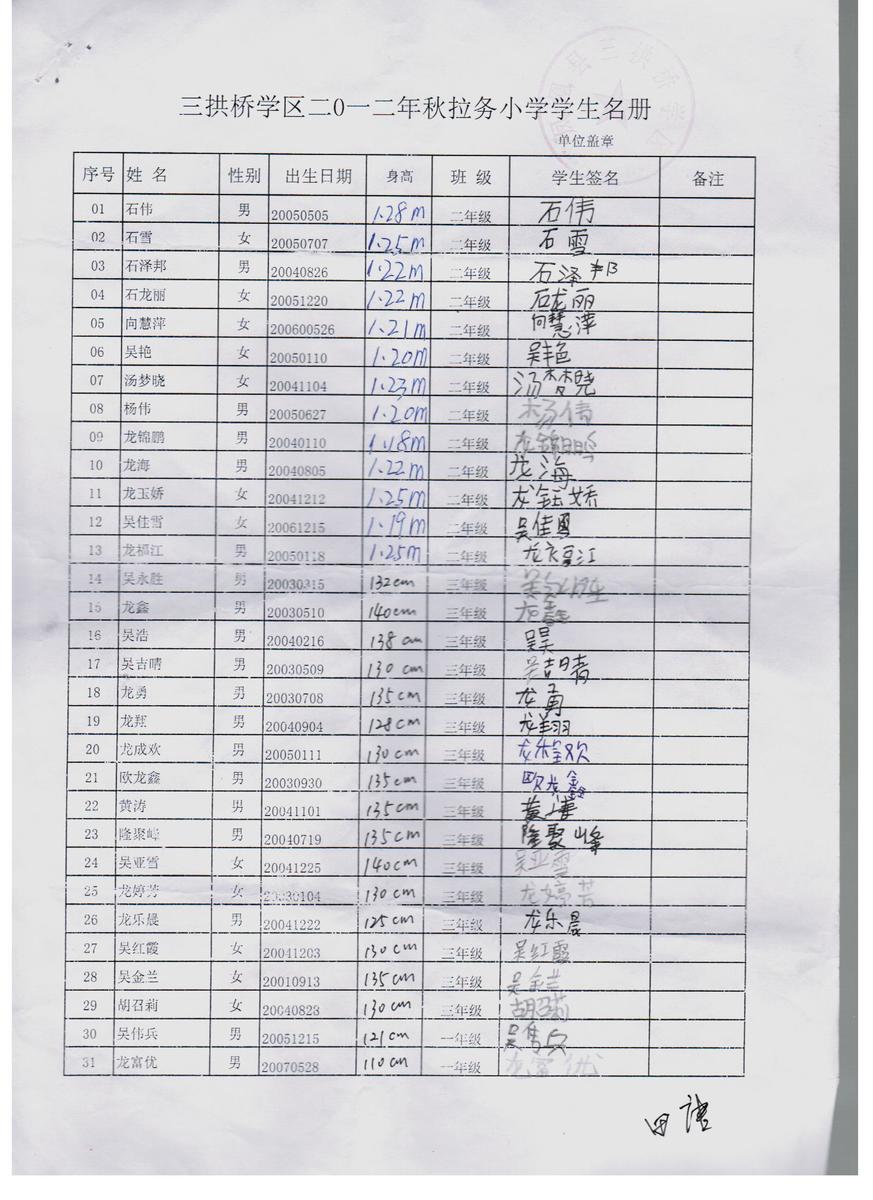 三拱桥学区二0一二年秋拉务小学学生名册
单位盖章
序号 姓 名 性别 出生日期 身高 班 级 学生签名 备注
01 石伟 男 20050505 1.28m 二年级 石伟
02 石雪 女 20050707 1.25m 二年级 石雪
03 石泽邦 男 20040826 1.22m 二年级 石泽邦
04 石龙丽 女 20051220 1.22m 二年级 石龙丽
05 向慧萍 女 200600526 1.21m 二年级 向慧萍
06 吴艳 女 20050110 1.20m 二年级 吴艳
07 汤梦晓 女 20041104 1.23m 二年级 汤梦晓
08 杨伟 男 20050627 1.20m 二年级 杨伟
09 龙锦鹏 男 20040110 1.18m 二年级 龙锦鹏
10 龙海 男 20040805 1.22m 二年级 龙海
11 龙玉娇 女 20041212 1.25m 二年级 龙钰娇
12 吴佳雪 女 20061215 1.19m 二年级 吴佳雪
13 龙福江 男 20050118 1.25m 二年级 龙福江
14 吴永胜 男 20030315 132cm 三年级 吴永胜
15 龙鑫 男 20030510 140cm 三年级 龙鑫
16 吴浩 男 20040216 138cm 三年级 吴昊
17 吴吉晴 男 20030509 130cm 三年级 吴吉晴
18 龙勇 男 20030708 135cm 三年级 龙勇
19 龙翔 男 20040904 128cm 三年级 龙翔
20 龙成欢 男 20050111 130cm 三年级 龙程欢
21 欧龙鑫 男 20030930 135cm 三年级 欧龙鑫
22 黄涛 男 20041101 135cm 三年级 黄涛
23 隆聚峰 男 20040719 135cm 三年级 隆聚峰
24 吴亚雪 女 20041225 140cm 三年级 吴亚雪
25 龙婷芳 女 20030104 130cm 三年级 龙婷芳
26 龙乐晨 男 20041222 125cm 三年级 龙乐晨
27 吴红霞 女 20041203 130cm 三年级 吴红霞
28 吴金兰 女 20010913 135cm 三年级 吴金兰
29 胡召莉 女 20040823 130cm 三年级 胡召莉
30 吴伟兵 男 20051215 121cm 一年级 吴伟兵
31 龙富优 男 20070528 110cm 一年级 龙富优